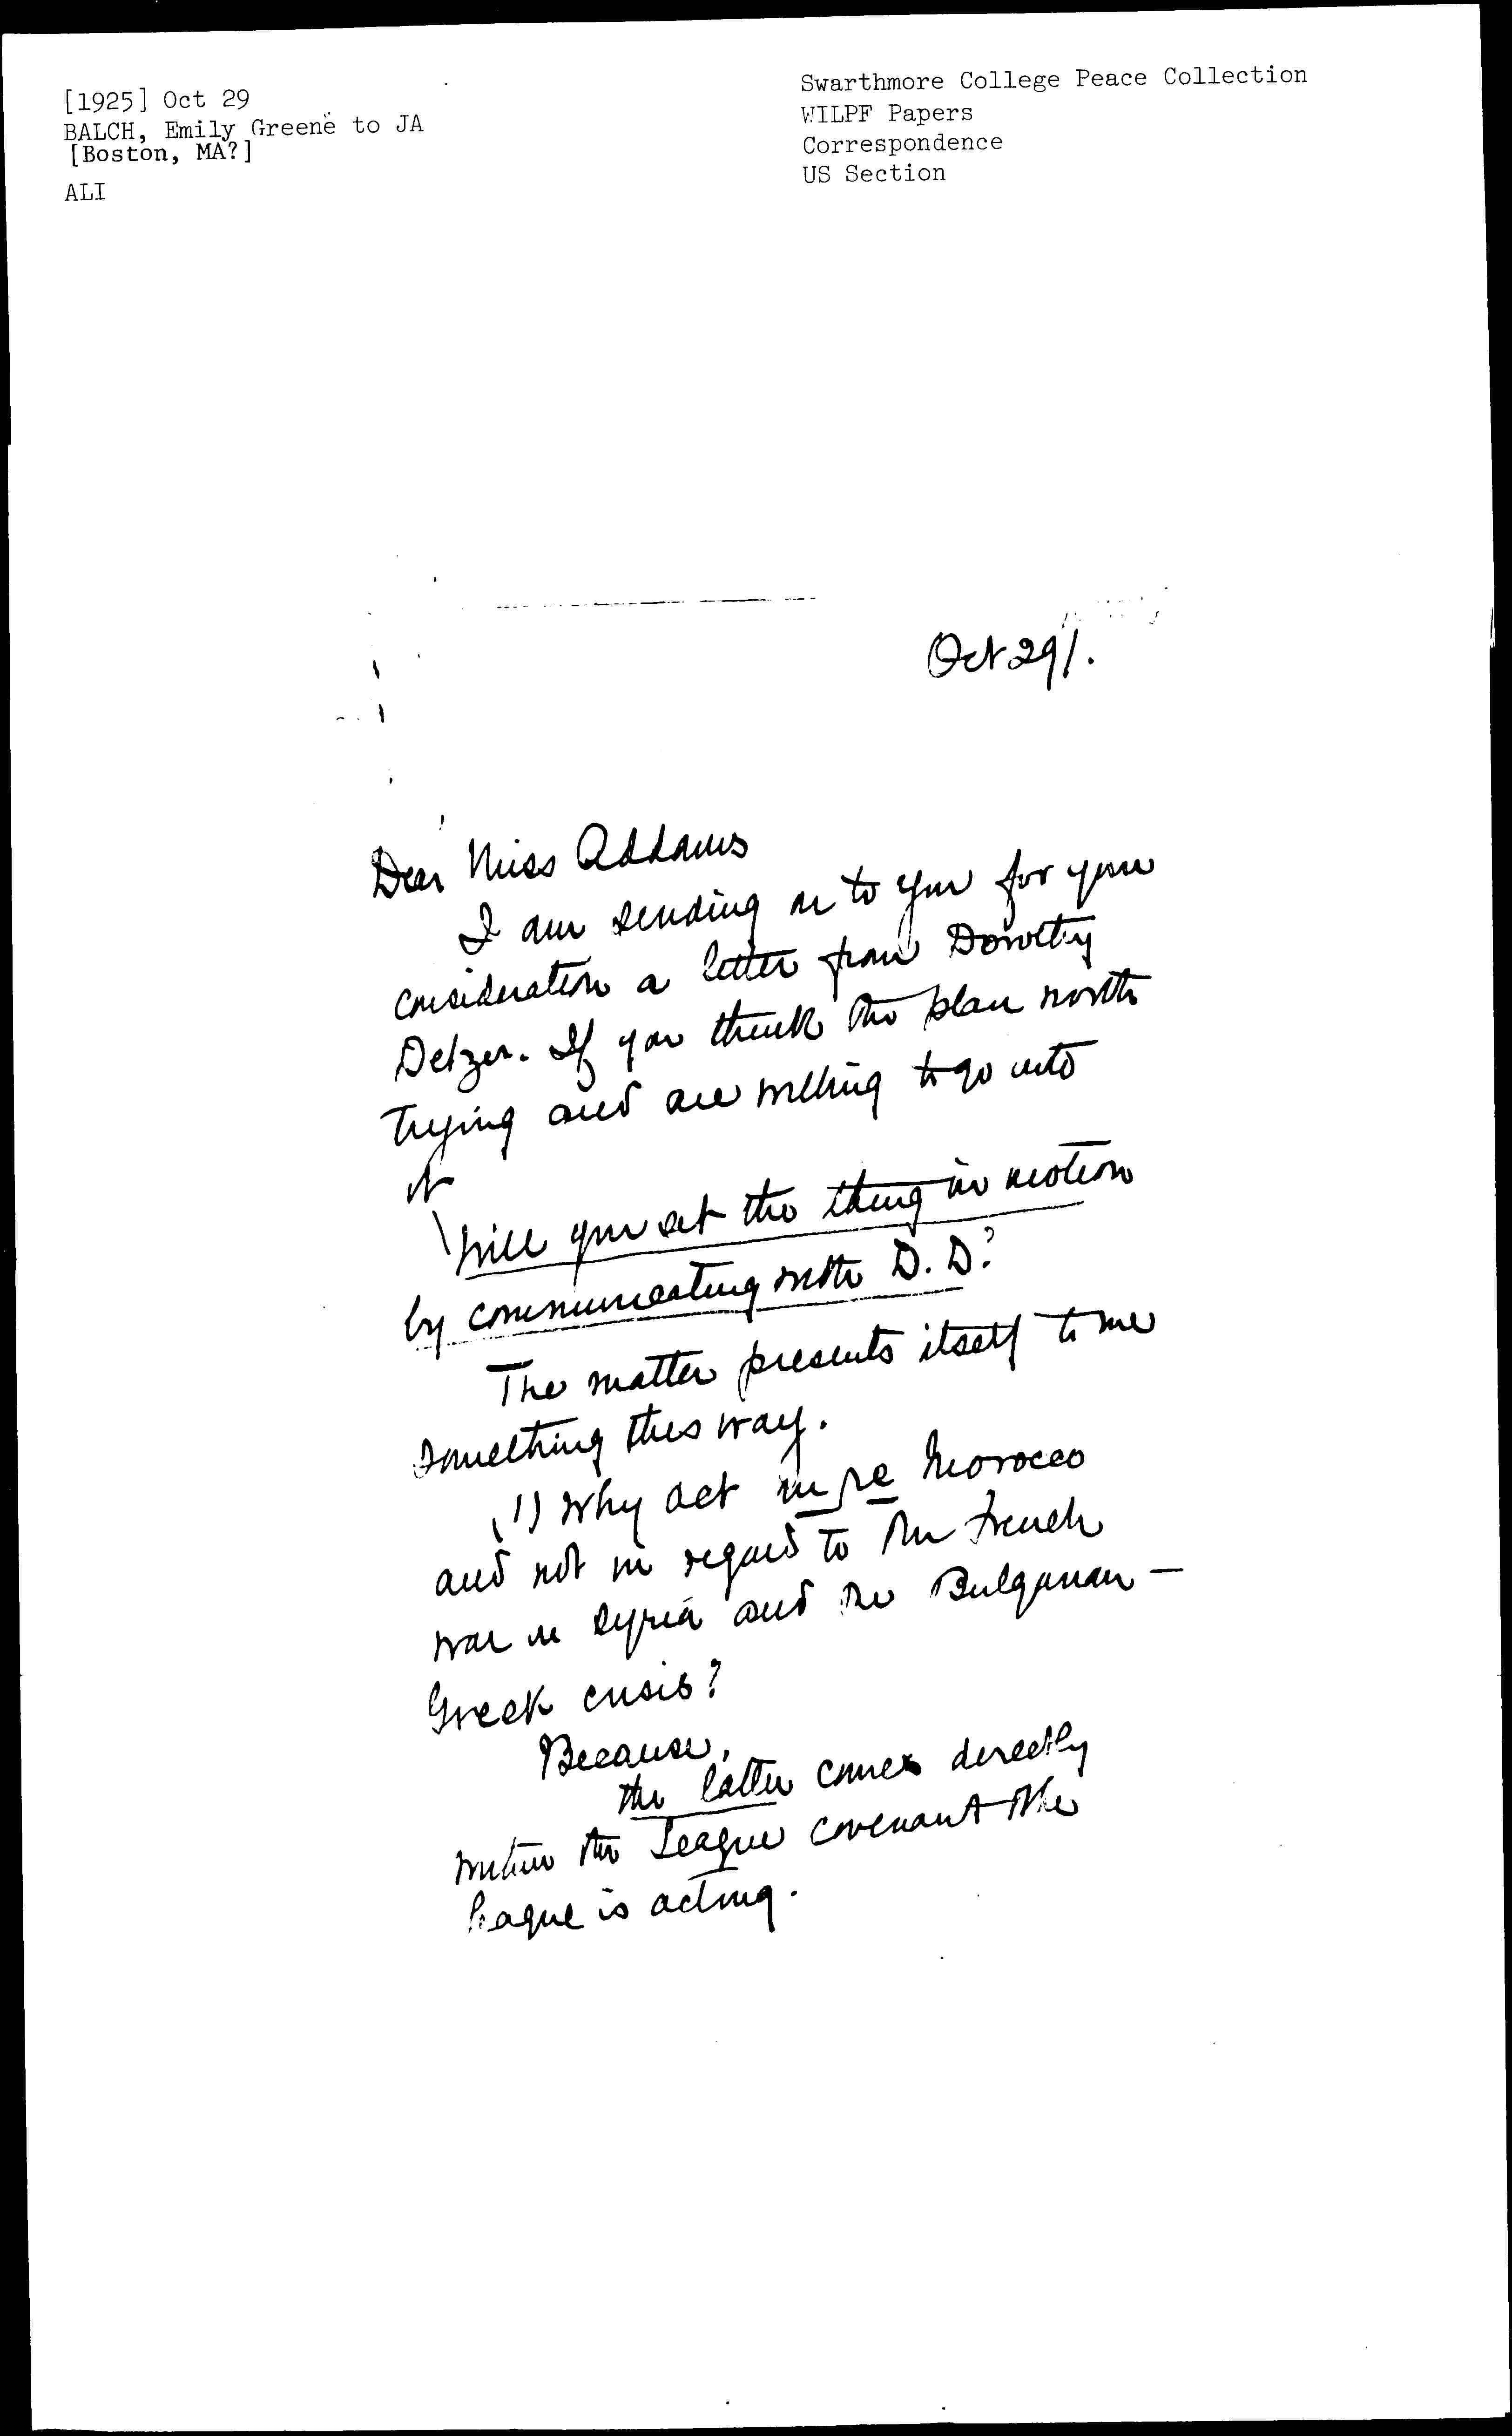 [1925] Oct 29
BALCH, Emily Greene to JA
[Boston, MA?]
ALI
Swarthmore College Peace Collection
WILPF Papers
Correspondence
US Section
Oct 29/.
Dear Miss Addams
I am sending on to you for your
consideration a letter from Dorothy
Detzer. If you think the plan worth
trying and are willing to go into
it
will you set the thing in motion
by communicating with D. D.?
The matter presents itself to me
something this way.
(1) Why act in re Morocco
and not in regard to the French
war in Syria and the Bulgarian —
Greek crisis?
Because,
the latter comes directly
within the League covenant the
league is acting.